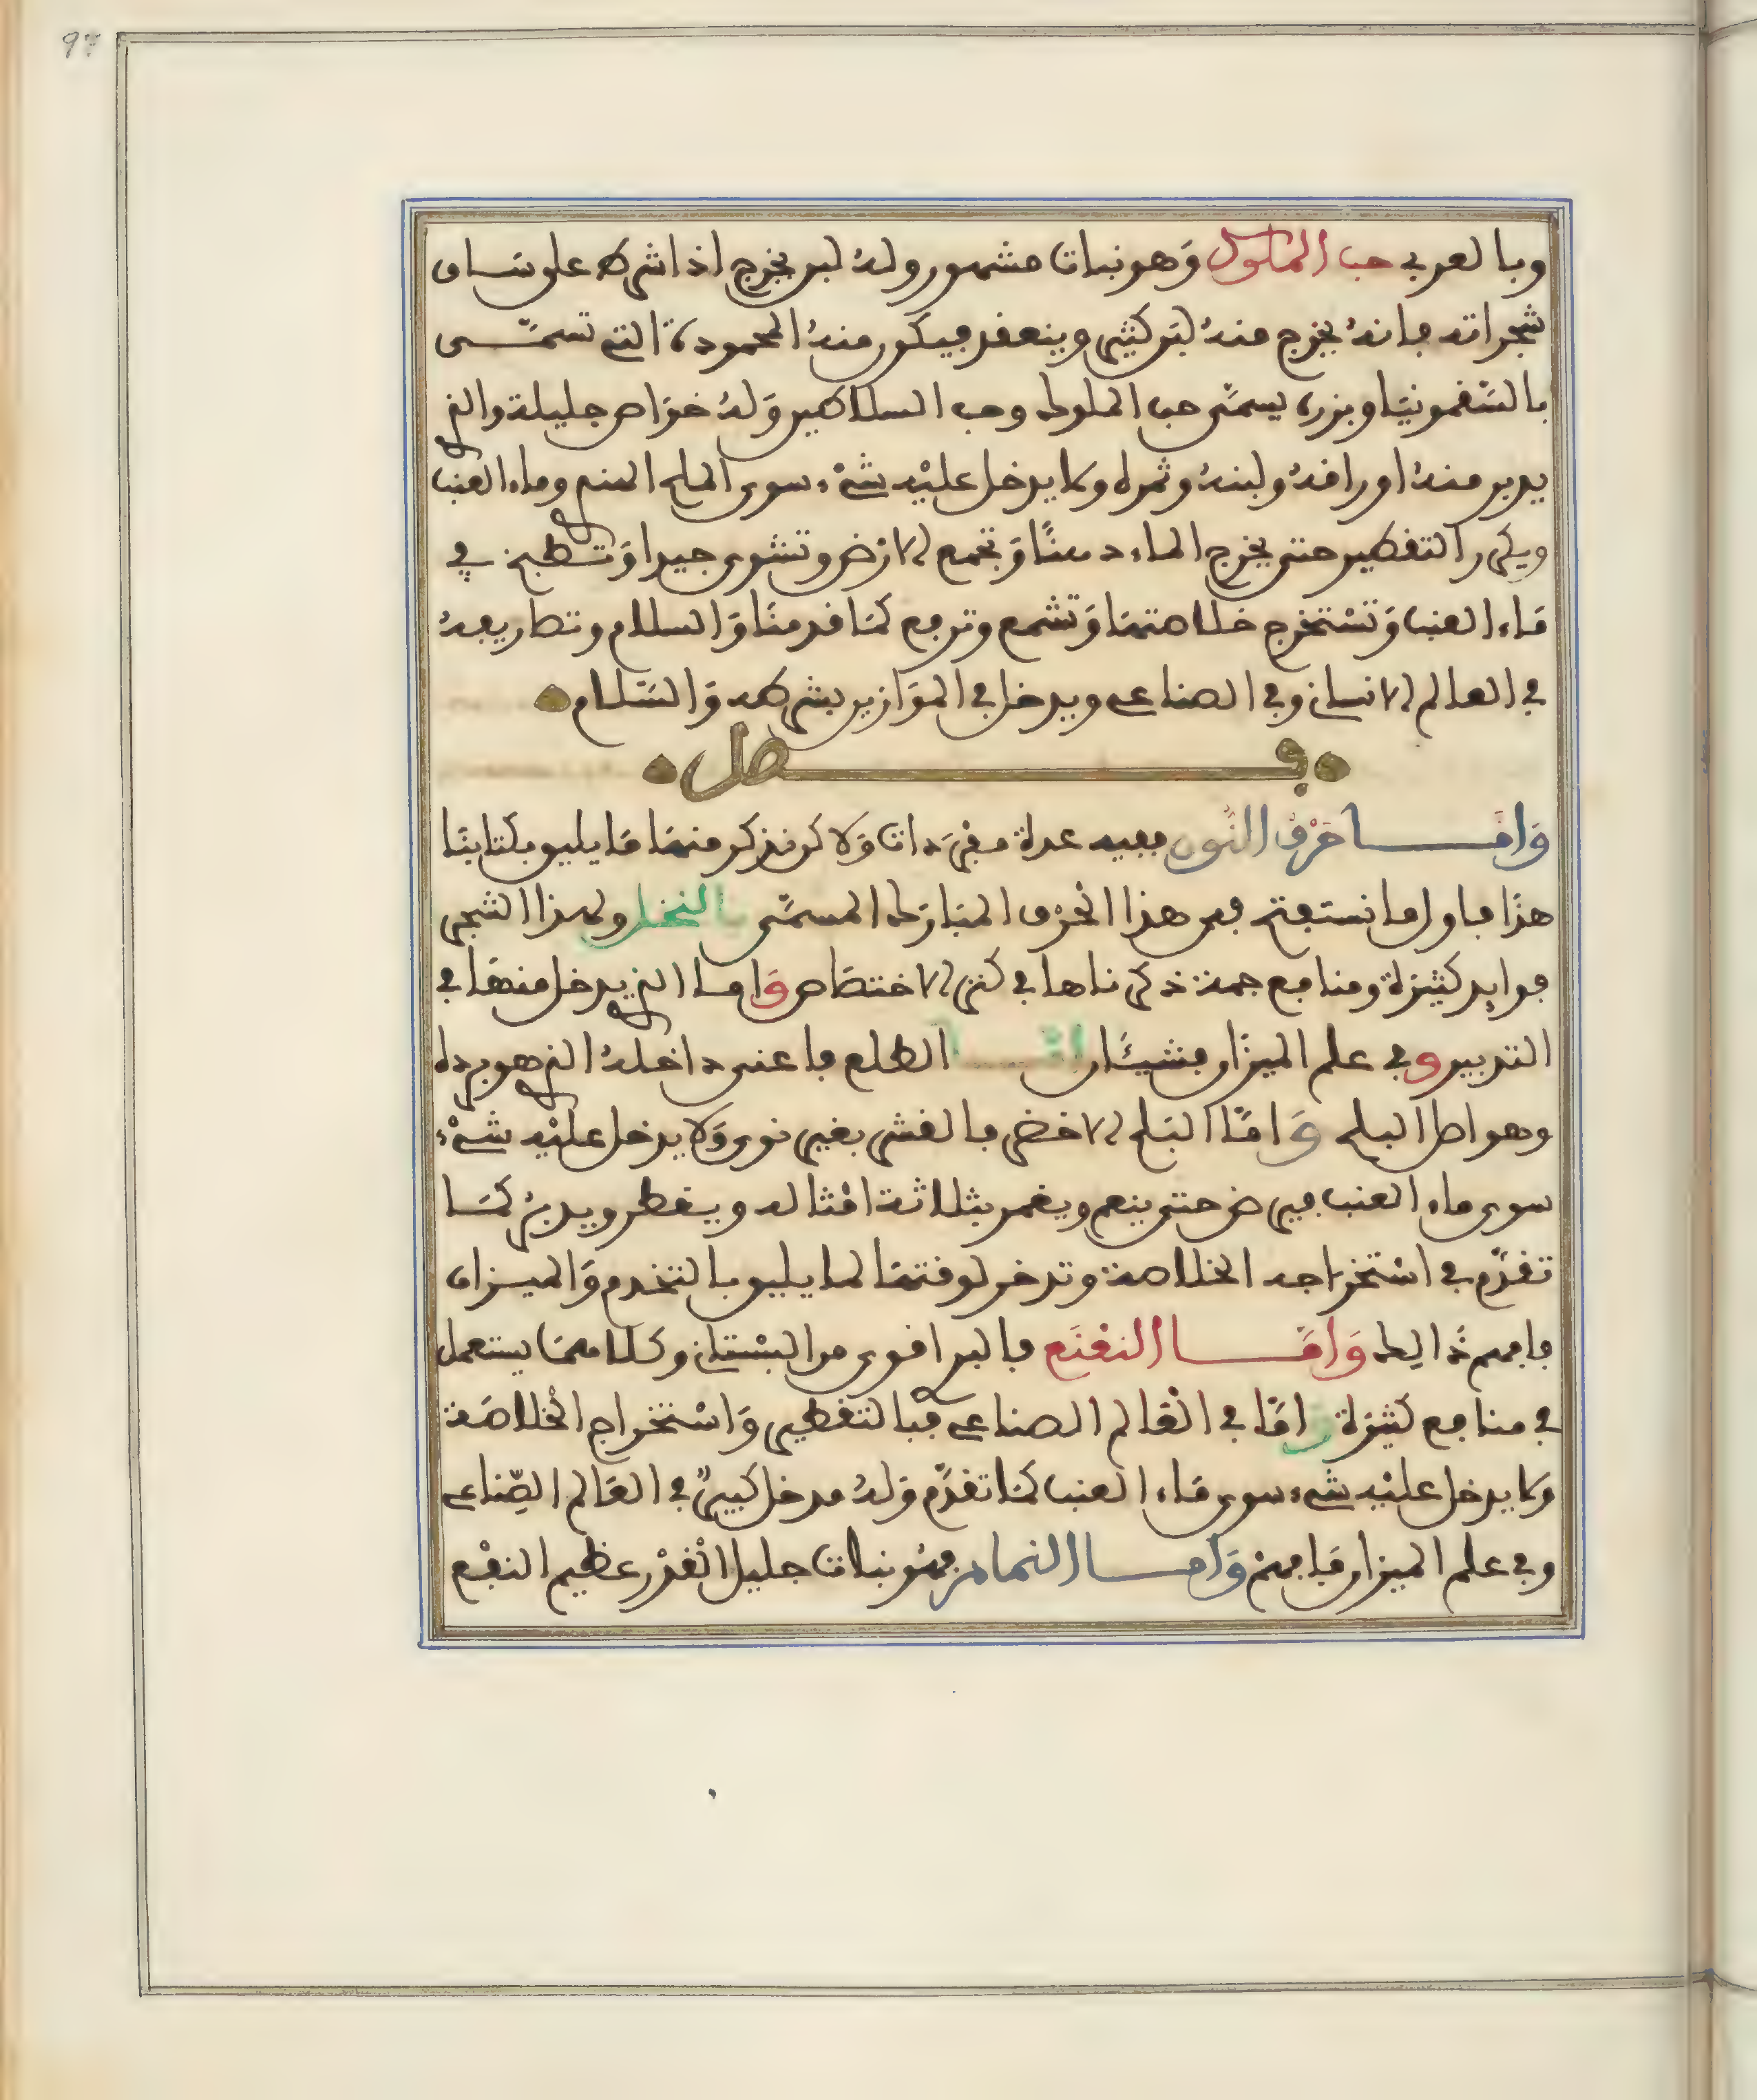 97
وبالعربي حب الملوك وَهو نبات مشهور ولهُ لبن يخرج اذا شرط على سَاق
شجراته فانهُ يخرج منهُ لبَن كثير وينعقد فيكَون منهُ المحمودة التي تسمّى
بالسَقمونيَا وبزره يسمّى حب الملوك وحب السلاطين وَلهُ خوَاص جليلة والذي
يدبر منهُ اوراقهُ ولبنهُ وثمره ولا يدخل عليْه شيْء سوى الملح المنعم وماء العنب
ويكرر التقطير حتى يخرج الماء دهنًا وَتجمع الارْض وتشوى جيدا وَتطبخ في
مَاء العنب وَتسْتخرج خلاصتهَا وَتشمع وترفع كمَا قدمنَا وَالسلام وتصاريفهُ
في العالم الانساني وفي الصناعي ويدخل في الموَازين بشرطه وَالسَّلام
فصل
وَامَّا حَرْف النُّون ففيه عدة مفرَدات وَلاكن نذكر منهَا مَا يليق بكتابنَا
هذَا فاول ما نستفتح فى هذا الحَرْف المبارك المسمَّى بالنخل ولهذا الشجر
فوايد كثيرَة ومنافع جمة ذكرناها في كنز الاختصَاص وَاما الذي يدخل منهَا في
التدبير وفي علم الميزَان فشيئَان امَّا الطلع فاعنى داخلهُ الذي هو برداه
وهو اصل البلح وَامَّا البَلح الاخضر فالقشر بغير نوى وَلا يدخل عليْه شيْء
سوى ماء العنب فيرض حتى ينعم ويغمر بثلاثة امْثاله ويقطر ويدبرُ كمَا
تقدَّم في اسْتخرَاجه الخلاصة وتدخر لوقتهَا لما يليق بالتخدم وَالميزان
فافهم ذَالِك وَامَّا النعْنَع فالبر اقوى من البسْتاني وكلاهمَا يستعمل
في منافع كثيرَة وَامَّا في العَالم الصناعي فبالتقطير وَاسْتخراج الخلاصَة
ولا يدخل عليْه شيء سوى مَاء العنب كمَا تقدَّم وَلهُ مدخل كبيرٌ في العَالم الصِّناعي
وفي علم الميزان فَافهمْ وَامَّا النمام فهوَ نبات جليل القدْر عظيم النفْع